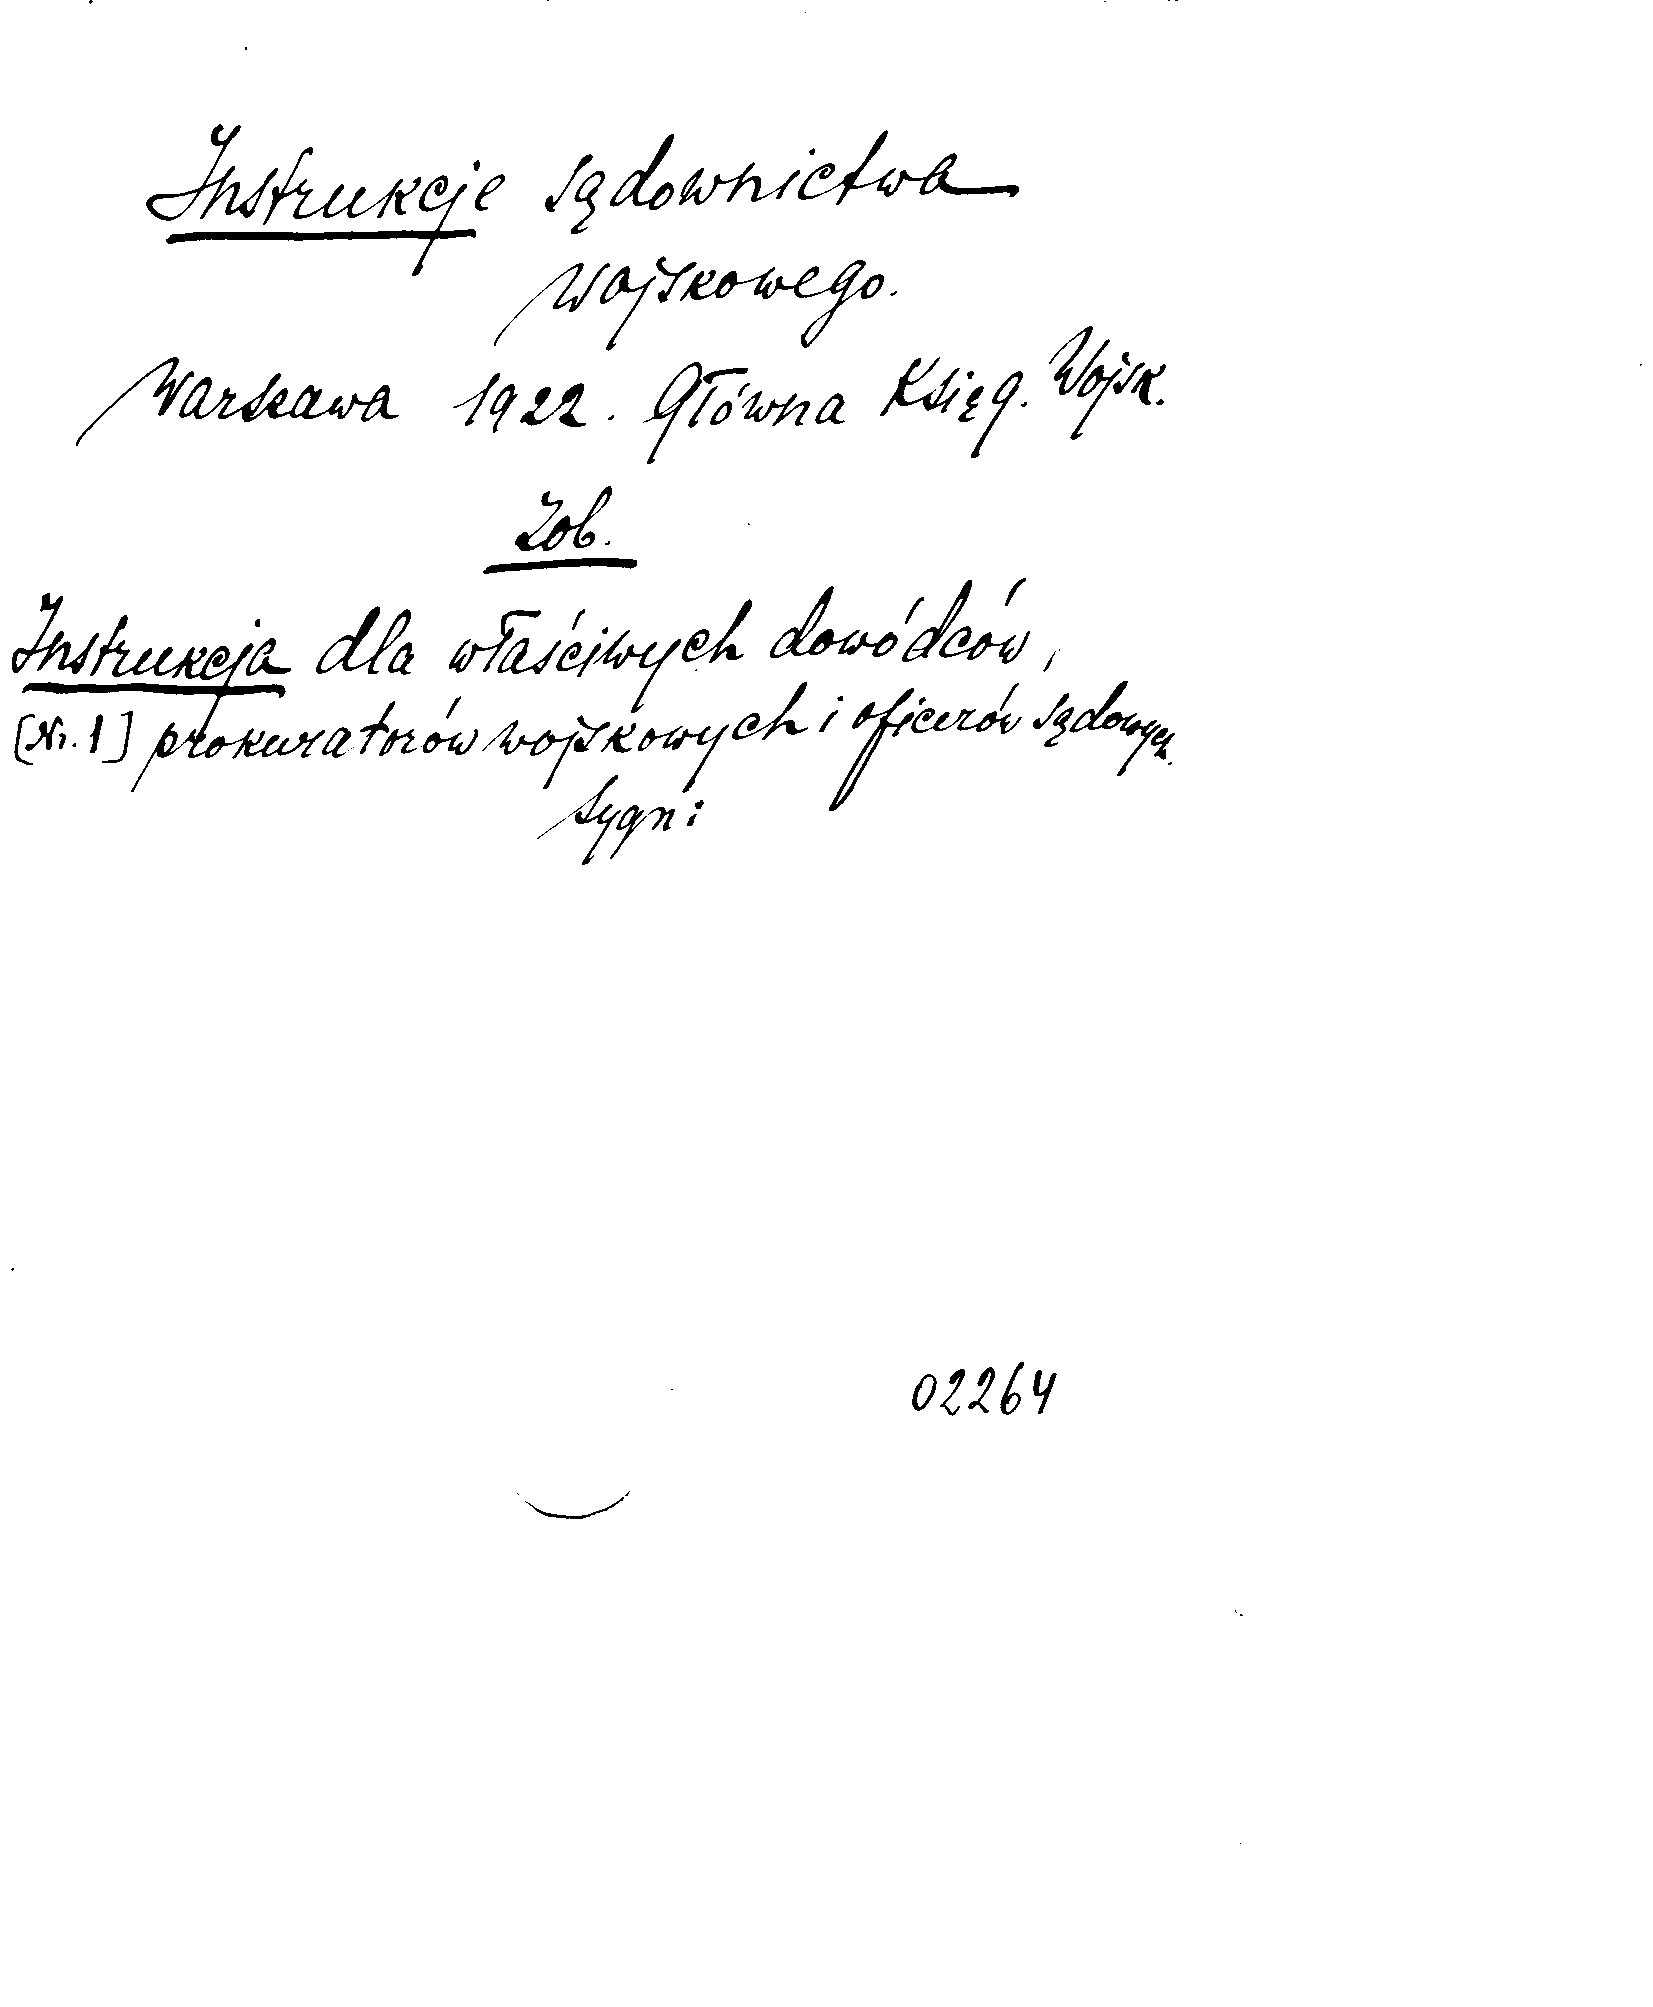 Instrukcje sądownictwa
Wojskowego.
Warszawa 1922. Główna Księg. Wojsk.
Zob.
Instrukcja dla właściwych dowódców,
[Nr. 1] prokuratorów wojskowych i oficerów sądowych.
Sygn:
02264